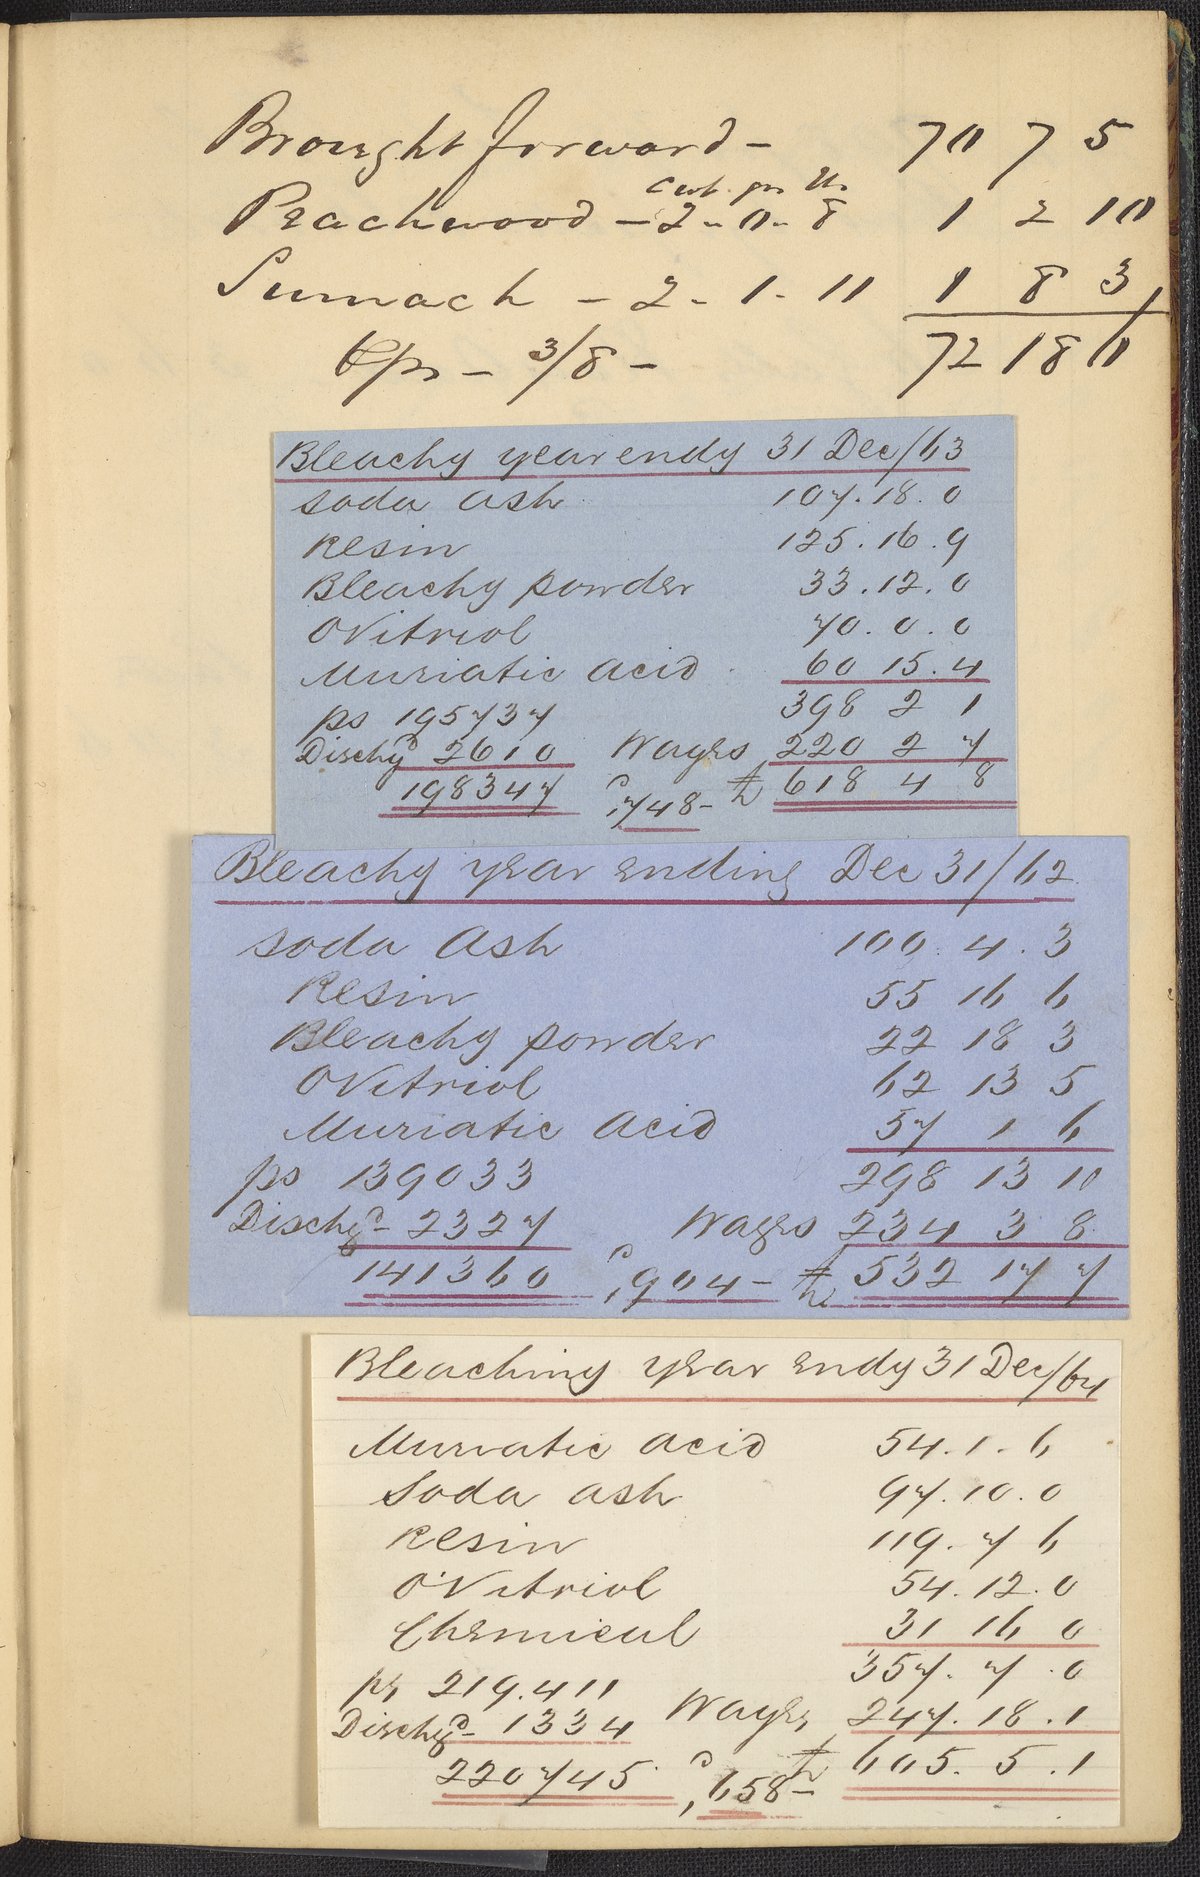 Brought forward - 70 7 5
Cwt. qrs lls
Peachwood - 2 - 0 - 8 1 2 10
Sumach - 2 - 1 - 11 1 8 3
- 3/8 - 72 18 6
Bleachg year endg 31 Dec/63
soda ash 107.18.0
Resin 125.16.9
Bleachg powder 33.12.0
OVitriol 70.0.0
Muriatic acid 60 15.4
ps 195737 398 2 1
Dischgd 2610 Wages 220 2 7
198347 ,748- £ 618 4 8
Bleachg year ending Dec 31/62
soda Ash 100.4.3
Resin 55 16 6
Bleachg powder 22 18 3
OVitriol 62 13 5
Muriatic Acid 57 1 6
ps 139033 298 13 10
Dischgd - 2327 Wages 234 3 8
141360 ,904 - £ 532 17 7
Bleaching year endg 31 Dec/64
Muriatic acid 54.1.6
Soda ash 97.10.0
Resin 119.7 6
O'Vitriol 54.12.0
Chemical 31 16 0
ps 219.411 357.7.0
Dischgd - 1334 Wages 247.18.1
220745 ,658- £ 605.5.1